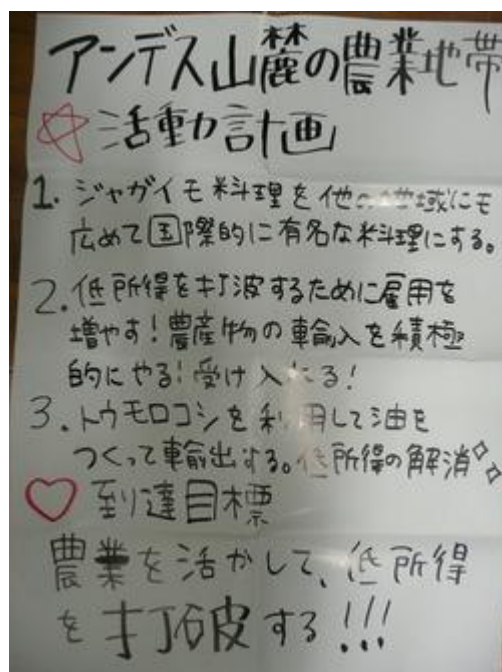 アンデス山麓の農業地帯
活動計画
1. ジャガイモ料理を他の地域にも
広めて国際的に有名な料理にする。
2. 低所得を打破するために雇用を
増やす！農産物の輸入を積極
的にやる！受け入れる！
3. トウモロコシを利用して油を
つくって輸出する。低所得の解消
到達目標
農業を活かして、低所得
を打破する!!!